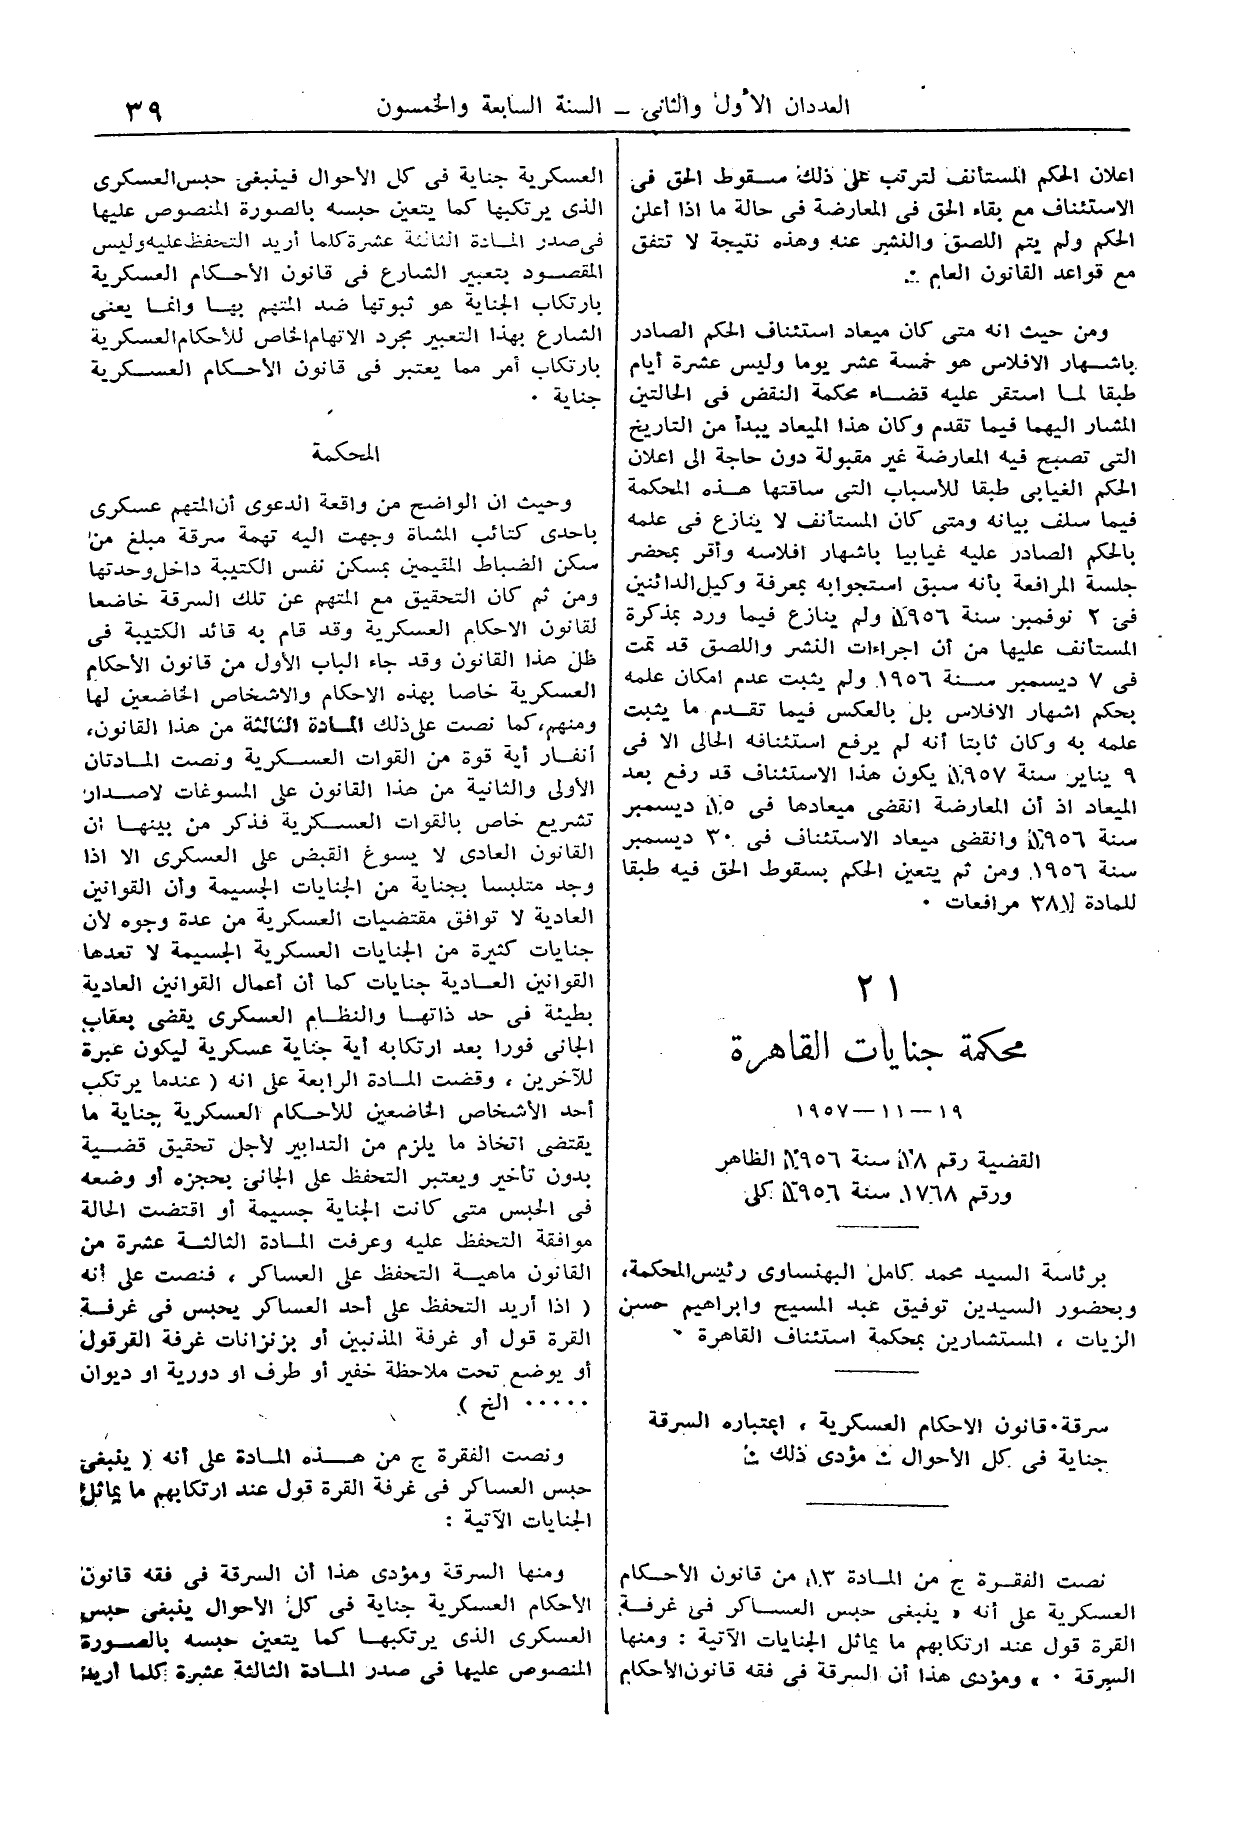 العددان الأول والثانى – السنة السابعة والخمسون
٣٩
اعلان الحكم المستأنف لترتب على ذلك سقوط الحق فى
الاستئناف مع بقاء الحق فى المعارضة فى حالة ما اذا أعلن
الحكم ولم يتم اللصق والنشر عنه وهذه نتيجة لا تتفق
مع قواعد القانون العام .
ومن حيث انه متى كان ميعاد استئناف الحكم الصادر
باشهار الافلاس هو خمسة عشر يوما وليس عشرة أيام
طبقا لما استقر عليه قضاء محكمة النقض فى الحالتين
المشار اليهما فيما تقدم وكان هذا الميعاد يبدأ من التاريخ
التى تصبح فيه المعارضة غير مقبولة دون حاجة الى اعلان
الحكم الغيابى طبقا للأسباب التى ساقتها هذه المحكمة
فيما سلف بيانه ومتى كان المستأنف لا ينازع فى علمه
بالحكم الصادر عليه غيابيا باشهار افلاسه وأقر بمحضر
جلسة المرافعة بأنه سبق استجوابه بمعرفة وكيل الدائنين
فى ٢ نوفمبر سنة ١٩٥٦ ولم ينازع فيما ورد بمذكرة
المستأنف عليها من أن اجراءات النشر واللصق قد تمت
فى ٧ ديسمبر سنة ١٩٥٦ ولم يثبت عدم امكان علمه
بحكم اشهار الافلاس بل بالعكس فيما تقدم ما يثبت
علمه به وكان ثابتا أنه لم يرفع استئنافه الحالى الا فى
٩ يناير سنة ١٩٥٧ يكون هذا الاستئناف قد رفع بعد
الميعاد اذ أن المعارضة انقضى ميعادها فى ١٥ ديسمبر
سنة ١٩٥٦ وانقضى ميعاد الاستئناف فى ٣٠ ديسمبر
سنة ١٩٥٦ ومن ثم يتعين الحكم بسقوط الحق فيه طبقا
للمادة ٣٨١ مرافعات .
٢١
محكمة جنايات القاهرة
١٩–١١–١٩٥٧
القضية رقم سنة ١٩٥٦ الظاهر
ورقم ١٧٦٨ سنة ١٩٥٦ كلى
برئاسة السيد محمد كامل البهنساوى رئيس المحكمة،
وبحضور السيدين توفيق عبد المسيح وابراهيم حسن
الزيات ، المستشارين بمحكمة استئناف القاهرة .
سرقة. قانون الاحكام العسكرية ، اعتباره السرقة
جناية فى كل الأحوال . مؤدى ذلك .
نصت الفقرة ج من المادة ١٣ من قانون الأحكام
العسكرية على أنه « ينبغى حبس العساكر فى غرفة
القرة قول عند ارتكابهم ما يماثل الجنايات الآتية : ومنها
السرقة . » ومؤدى هذا أن السرقة فى فقه قانون الأحكام
العسكرية جناية فى كل الأحوال فينبغى حبس العسكرى
الذى يرتكبها كما يتعين حبسه بالصورة المنصوص عليها
فى صدر المادة الثالثة عشرة كلما أريد التحفظ عليه وليس
المقصود بتعبير الشارع فى قانون الأحكام العسكرية
بارتكاب الجناية هو ثبوتها ضد المتهم بها وانما يعنى
الشارع بهذا التعبير مجرد الاتهام الخاص للأحكام العسكرية
بارتكاب أمر مما يعتبر فى قانون الأحكام العسكرية
جناية .
المحكمة
وحيث ان الواضح من واقعة الدعوى أن المتهم عسكرى
باحدى كتائب المشاة وجهت اليه تهمة سرقة مبلغ من
سكن الضباط المقيمين بمسكن نفس الكتيبة داخل وحدتها
ومن ثم كان التحقيق مع المتهم عن تلك السرقة خاضعا
لقانون الاحكام العسكرية وقد قام به قائد الكتيبة فى
ظل هذا القانون وقد جاء الباب الأول من قانون الأحكام
العسكرية خاصا بهذه الاحكام والاشخاص الخاضعين لها
ومنهم، كما نصت على ذلك المادة الثالثة من هذا القانون،
أنفار أية قوة من القوات العسكرية ونصت المادتان
الأولى والثانية من هذا القانون على المسوغات لاصدار
تشريع خاص بالقوات العسكرية فذكر من بينها ان
القانون العادى لا يسوغ القبض على العسكرى الا اذا
وجد متلبسا بجناية من الجنايات الجسيمة وأن القوانين
العادية لا توافق مقتضيات العسكرية من عدة وجوه لأن
جنايات كثيرة من الجنايات العسكرية الجسيمة لا تعدها
القوانين العادية جنايات كما أن أعمال القوانين العادية
بطيئة فى حد ذاتها والنظام العسكرى يقضى بعقاب
الجانى فورا بعد ارتكابه أية جناية عسكرية ليكون عبرة
للآخرين ، وقضت المادة الرابعة على انه ( عندما يرتكب
أحد الأشخاص الخاضعين للأحكام العسكرية جناية ما
يقتضى اتخاذ ما يلزم من التدابير لأجل تحقيق قضية
بدون تأخير ويعتبر التحفظ على الجانى بحجزه أو وضعه
فى الحبس متى كانت الجناية جسيمة أو اقتضت الحالة
موافقة التحفظ عليه وعرفت المادة الثالثة عشرة من
القانون ماهية التحفظ على العساكر ، فنصت على أنه
( اذا أريد التحفظ على أحد العساكر يحبس فى غرفة
القرة قول أو غرفة المذنبين أو بزنزانات غرفة القرقول
أو يوضع تحت ملاحظة خفير أو طرف او دورية او ديوان
..... الخ )
ونصت الفقرة ج من هذه المادة على أنه ( ينبغى
حبس العساكر فى غرفة القرة قول عند ارتكابهم ما يماثل
الجنايات الآتية :
ومنها السرقة ومؤدى هذا أن السرقة فى فقه قانون
الأحكام العسكرية جناية فى كل الأحوال ينبغى حبس
العسكرى الذى يرتكبها كما يتعين حبسه بالصورة
المنصوص عليها فى صدر المادة الثالثة عشرة كلما أريد